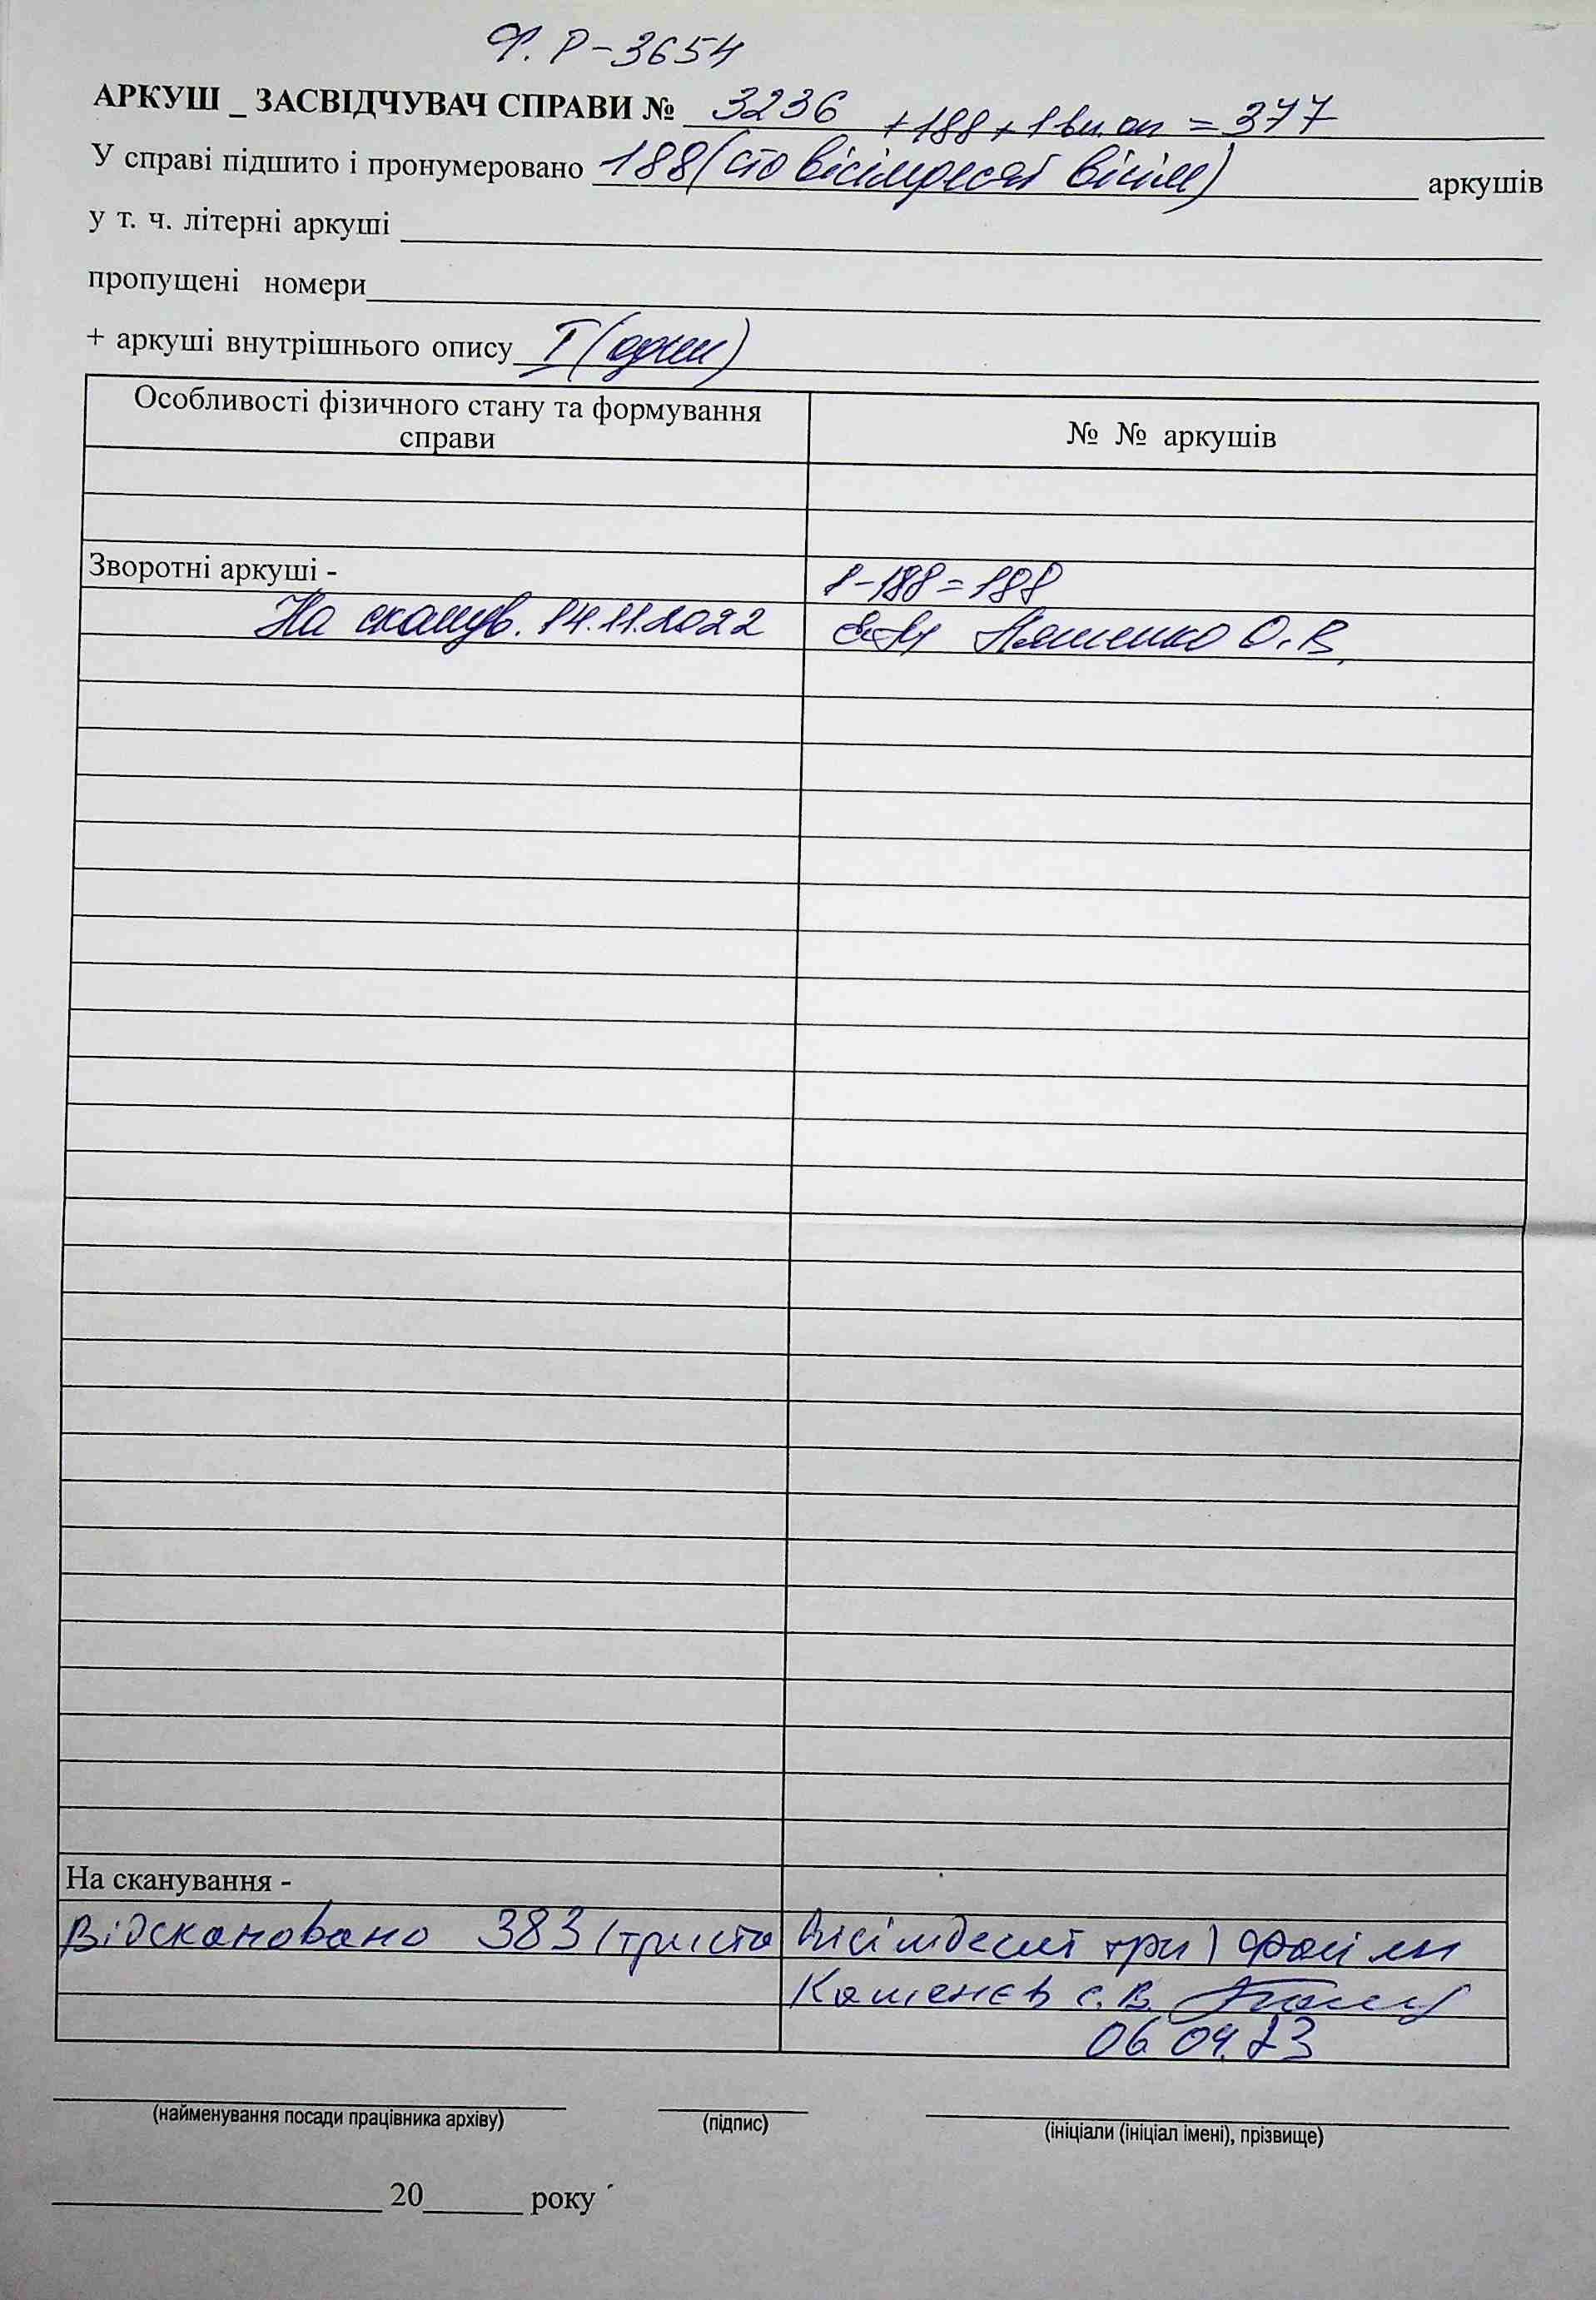 Ф. Р-3654
АРКУШ _ ЗАСВІДЧУВАЧ СПРАВИ № 3236 +188+1вн.оп = 377
У справі підшито і пронумеровано 188 (сто вісімдесят вісім) аркушів
у т. ч. літерні аркуші
пропущені номери
+ аркуші внутрішнього опису I (один)
Особливості фізичного стану та формування справи
№ № аркушів
Зворотні аркуші - 1-188=188
На сканув. 14.11.2022 О.В.
На сканування -
Відскановано 383 (триста вісімдесят три) файли
Каменєв С.В.
06.04.23
(найменування посади працівника архіву) (підпис) (ініціали (ініціал імені), прізвище)
20 року